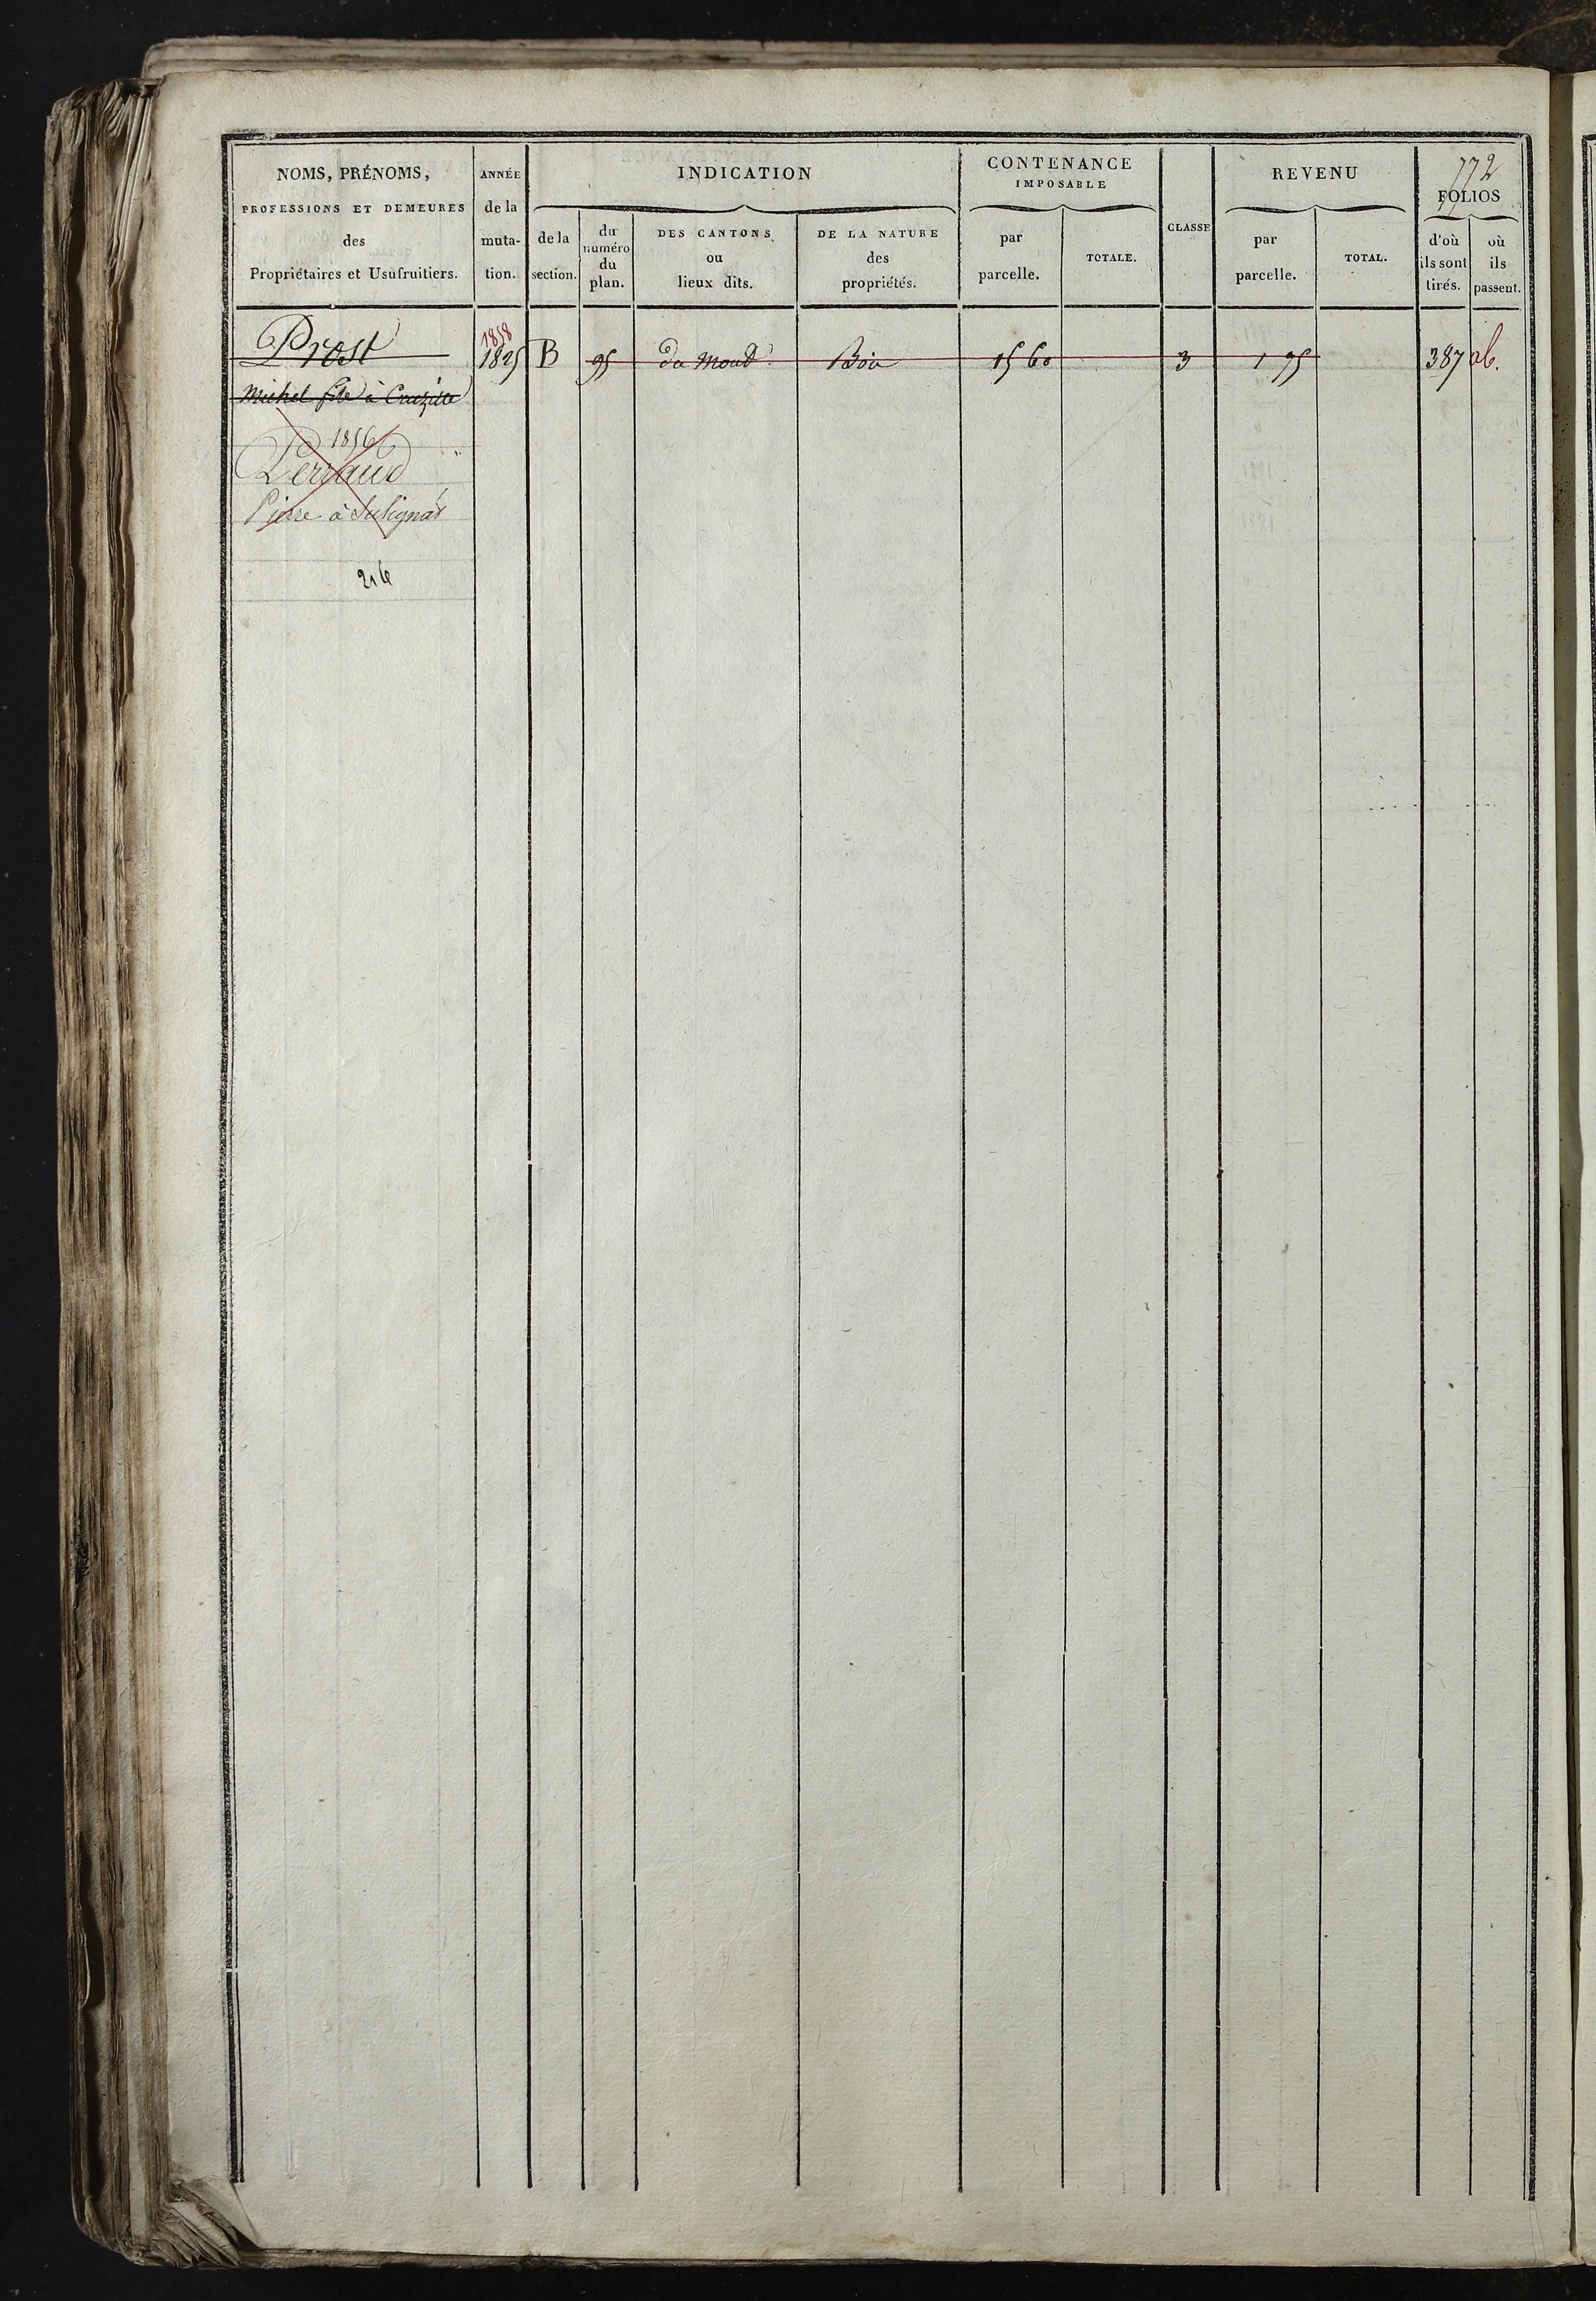 772
NOMS, PRÉNOMS,
PROFESSIONS ET DEMEURES
des
Propriétaires et Usufruitiers.
ANNÉE
de la
muta-
tion.
INDICATION
de la
section.
du
numéro
du
plan.
DES CANTONS
ou
lieux dits.
DE LA NATURE
des
propriétés.
CONTENANCE
IMPOSABLE
par
parcelle.
TOTALE.
CLASSE
REVENU
par
parcelle.
TOTAL.
FOLIOS
d'où
ils sont
tirés.
où
ils
passent.
1858
Prost 1825 B 95 du Moud Bois 15 60 3 1 95 387 ab.
Michel fils à Cruzille
1856
Perraud
Pierre à Sulignat
216